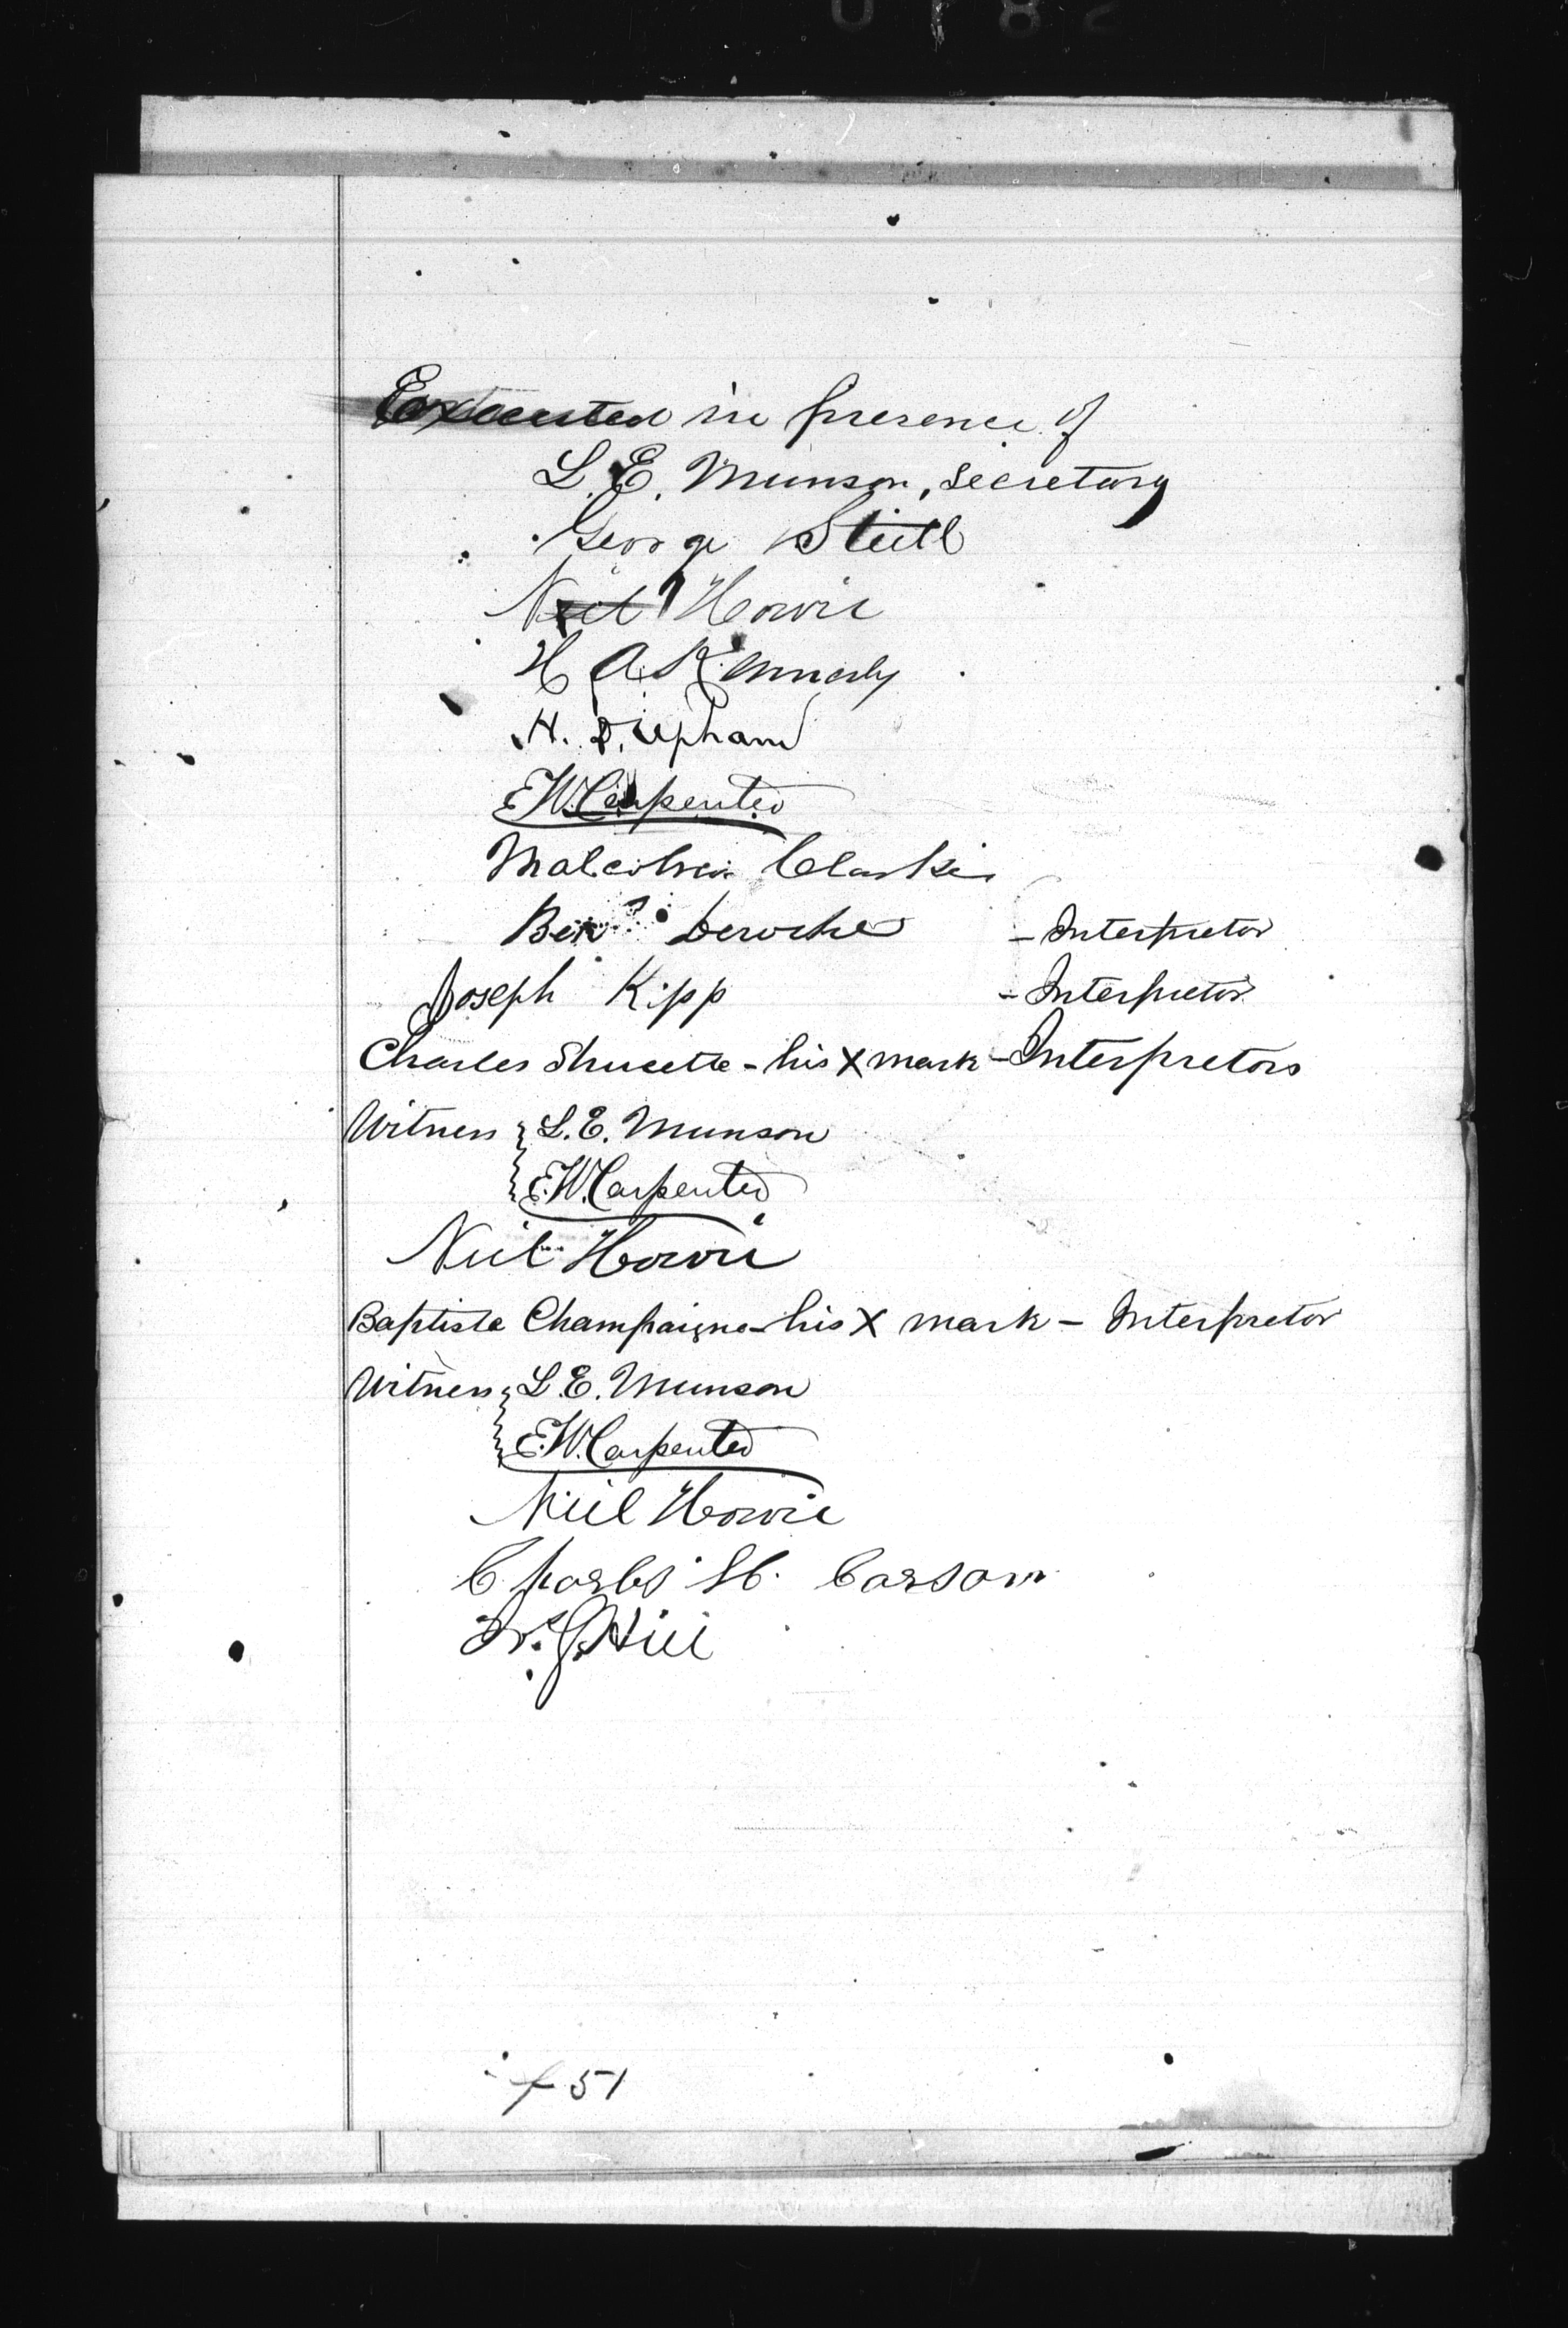 Executed in presence of
L. E. Munson, Secretary
George Steell
Neil Howie
H A Kennerly
H. D. Upham
E.W. Carpenter
Malcolm Clarke
Benj. Deroche - Interpretor
Joseph Kipp - Interpretor
Charles Shucette - his X mark - Interpretors
Witness L. E. Munson
E.W. Carpenter
Neil Howie
Baptiste Champaigne - his X mark - Interpretor
Witness L. E. Munson
E.W. Carpenter
Neil Howie
Charles H. Carson
Hill
51